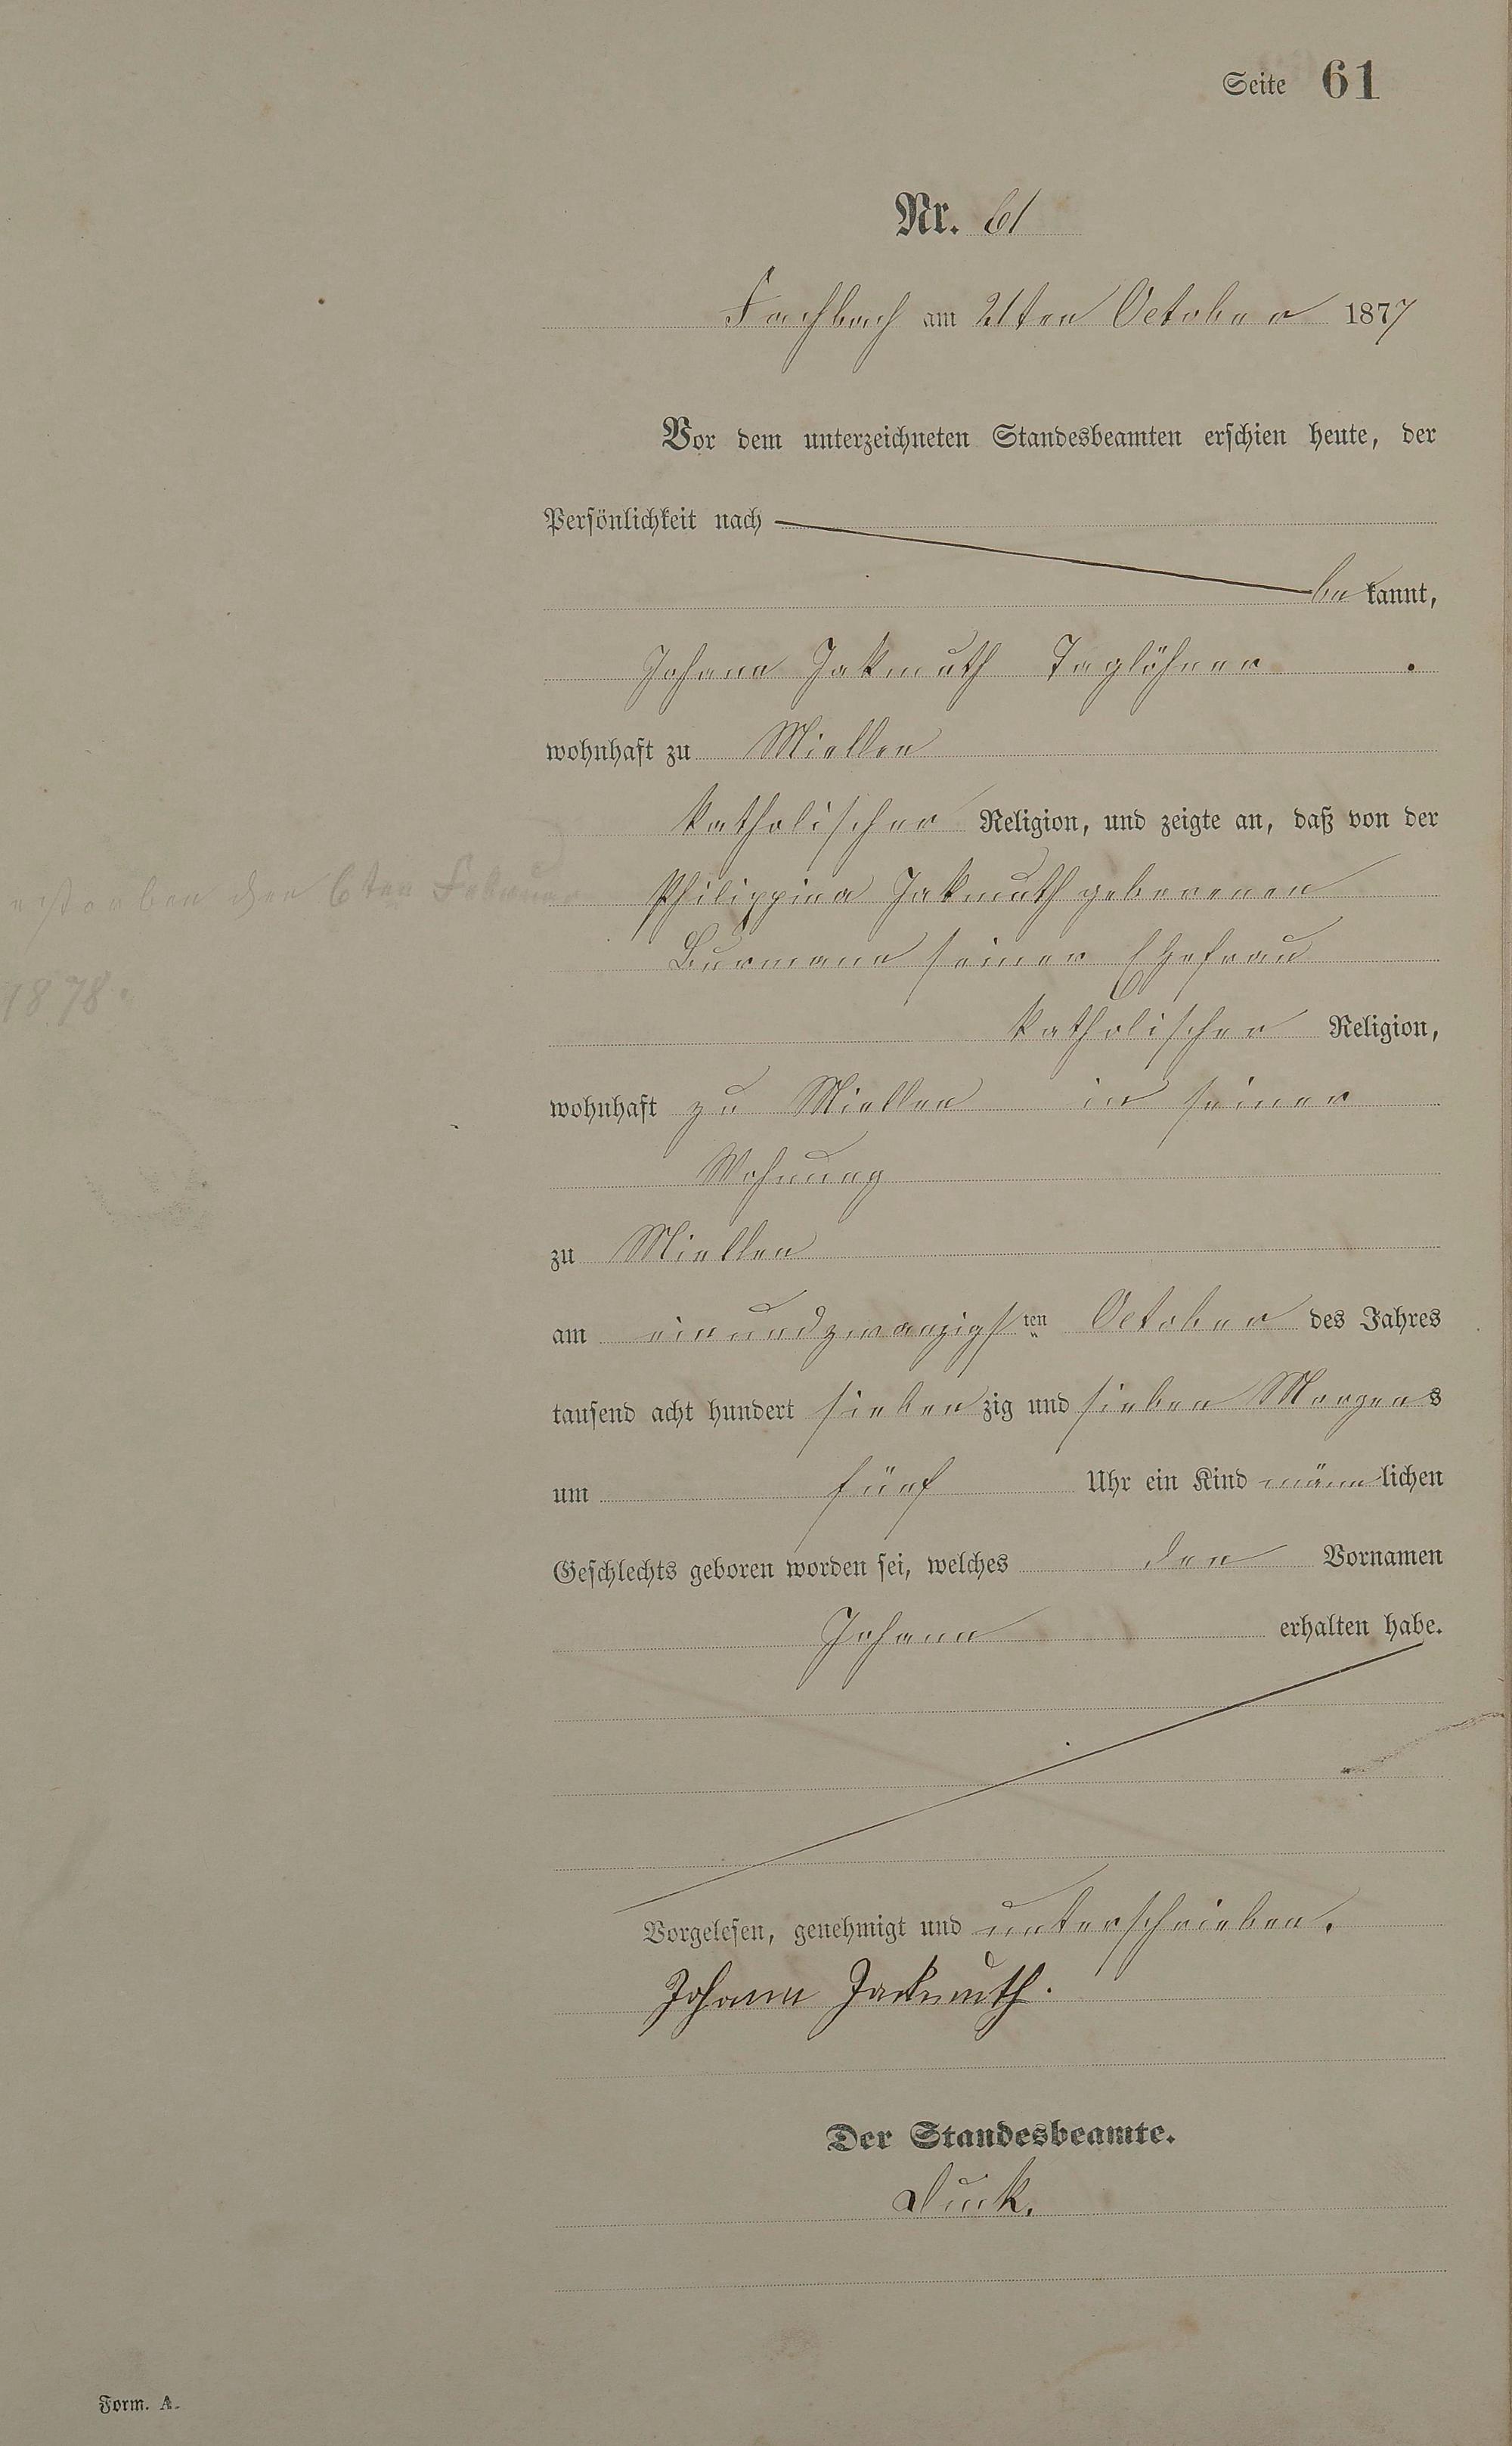 Seite 61
Nr. 61
Fachbach am 21ten October 1877
Vor dem unterzeichneten Standesbeamten erschien heute, der
Persönlichkeit nach
bekannt,
Johann Jakmuth Taglöhner
wohnhaft zu Miellen
katholischer Religion, und zeigte an, daß von der
Philippina Jakmuth geborenen
Burmann seiner Ehefrau
katholischer Religion,
wohnhaft zu Miellen in seiner
Wohnung
zu Miellen
am einundzwanzigsten October des Jahres
tausend acht hundert siebenzig und sieben Morgens
um fünf Uhr ein Kind männlichen
Geschlechts geboren worden sei, welches den Vornamen
Johann erhalten habe.
Vorgelesen, genehmigt und unterschrieben.
Johann Jackmuth.
Der Standesbeamte.
storben den 6ten Februar
1878.
Form. A.